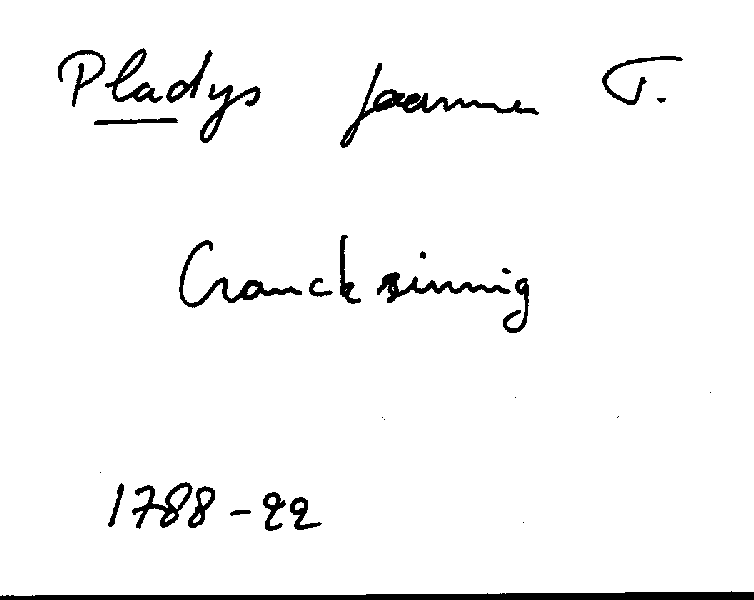 Pladys Joanna T.
Cranckzinnig
1788-22